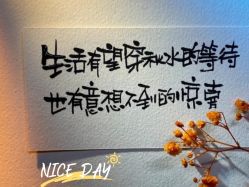 生活有望穿秋水的等待
也有意想不到的惊喜
NICE DAY